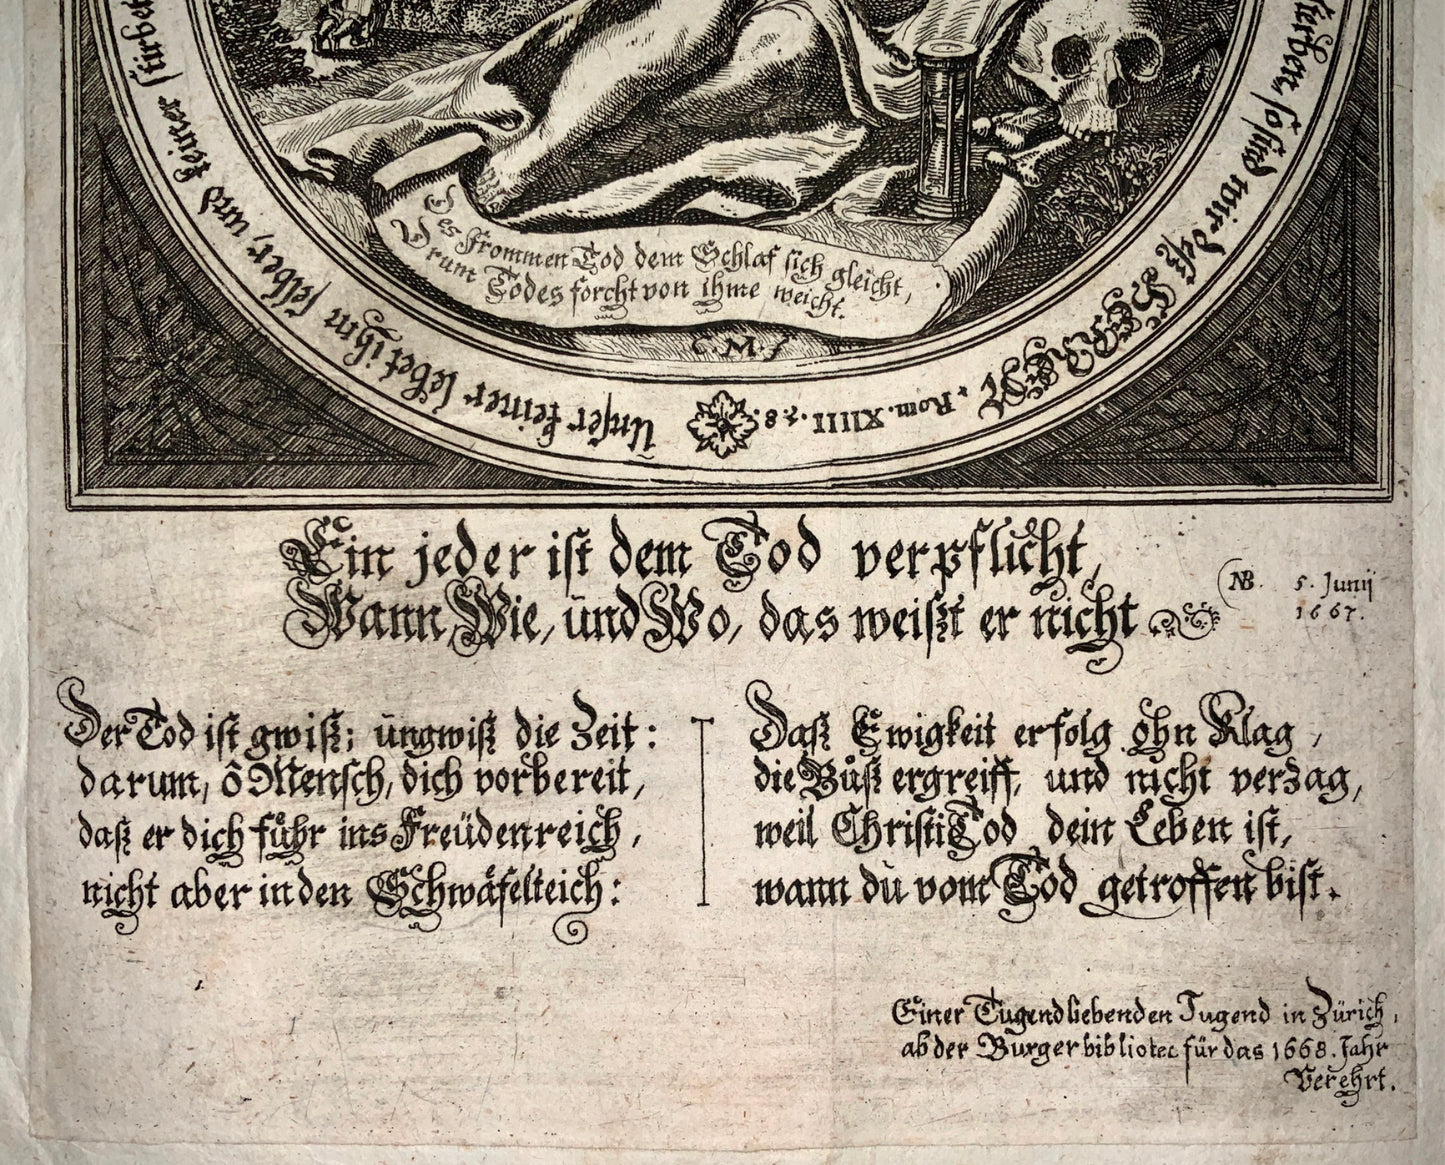 Unser keiner lebet ihm selber, und keiner stürbet
sterben, so sind wir deß HERREN. Rom. XIIII. ℣ 8.
Des Frommen Tod dem Schlaf sich gleicht,
Drum Todes forcht von ihme weicht.
C. M. f
Ein jeder ist dem Tod verpflicht,
Wann, Wie, und Wo, das weißt er nicht
NB. 5. Junij
1667.
Der Tod ist gwiß; ungwiß die Zeit:
darum, ô Mensch, dich vorbereit,
daß er dich führ ins Freüdenreich,
nicht aber in den Schwäfelteich:
Daß Ewigkeit erfolg ohn Klag,
die Bůß ergreiff, und nicht verzag,
weil Christi Tod dein Leben ist,
wann du vom Tod getroffen bist.
Einer Tugendliebenden Jugend in Zürich,
ab der Burgerbibliotec für das 1668. Jahr
Verehrt.